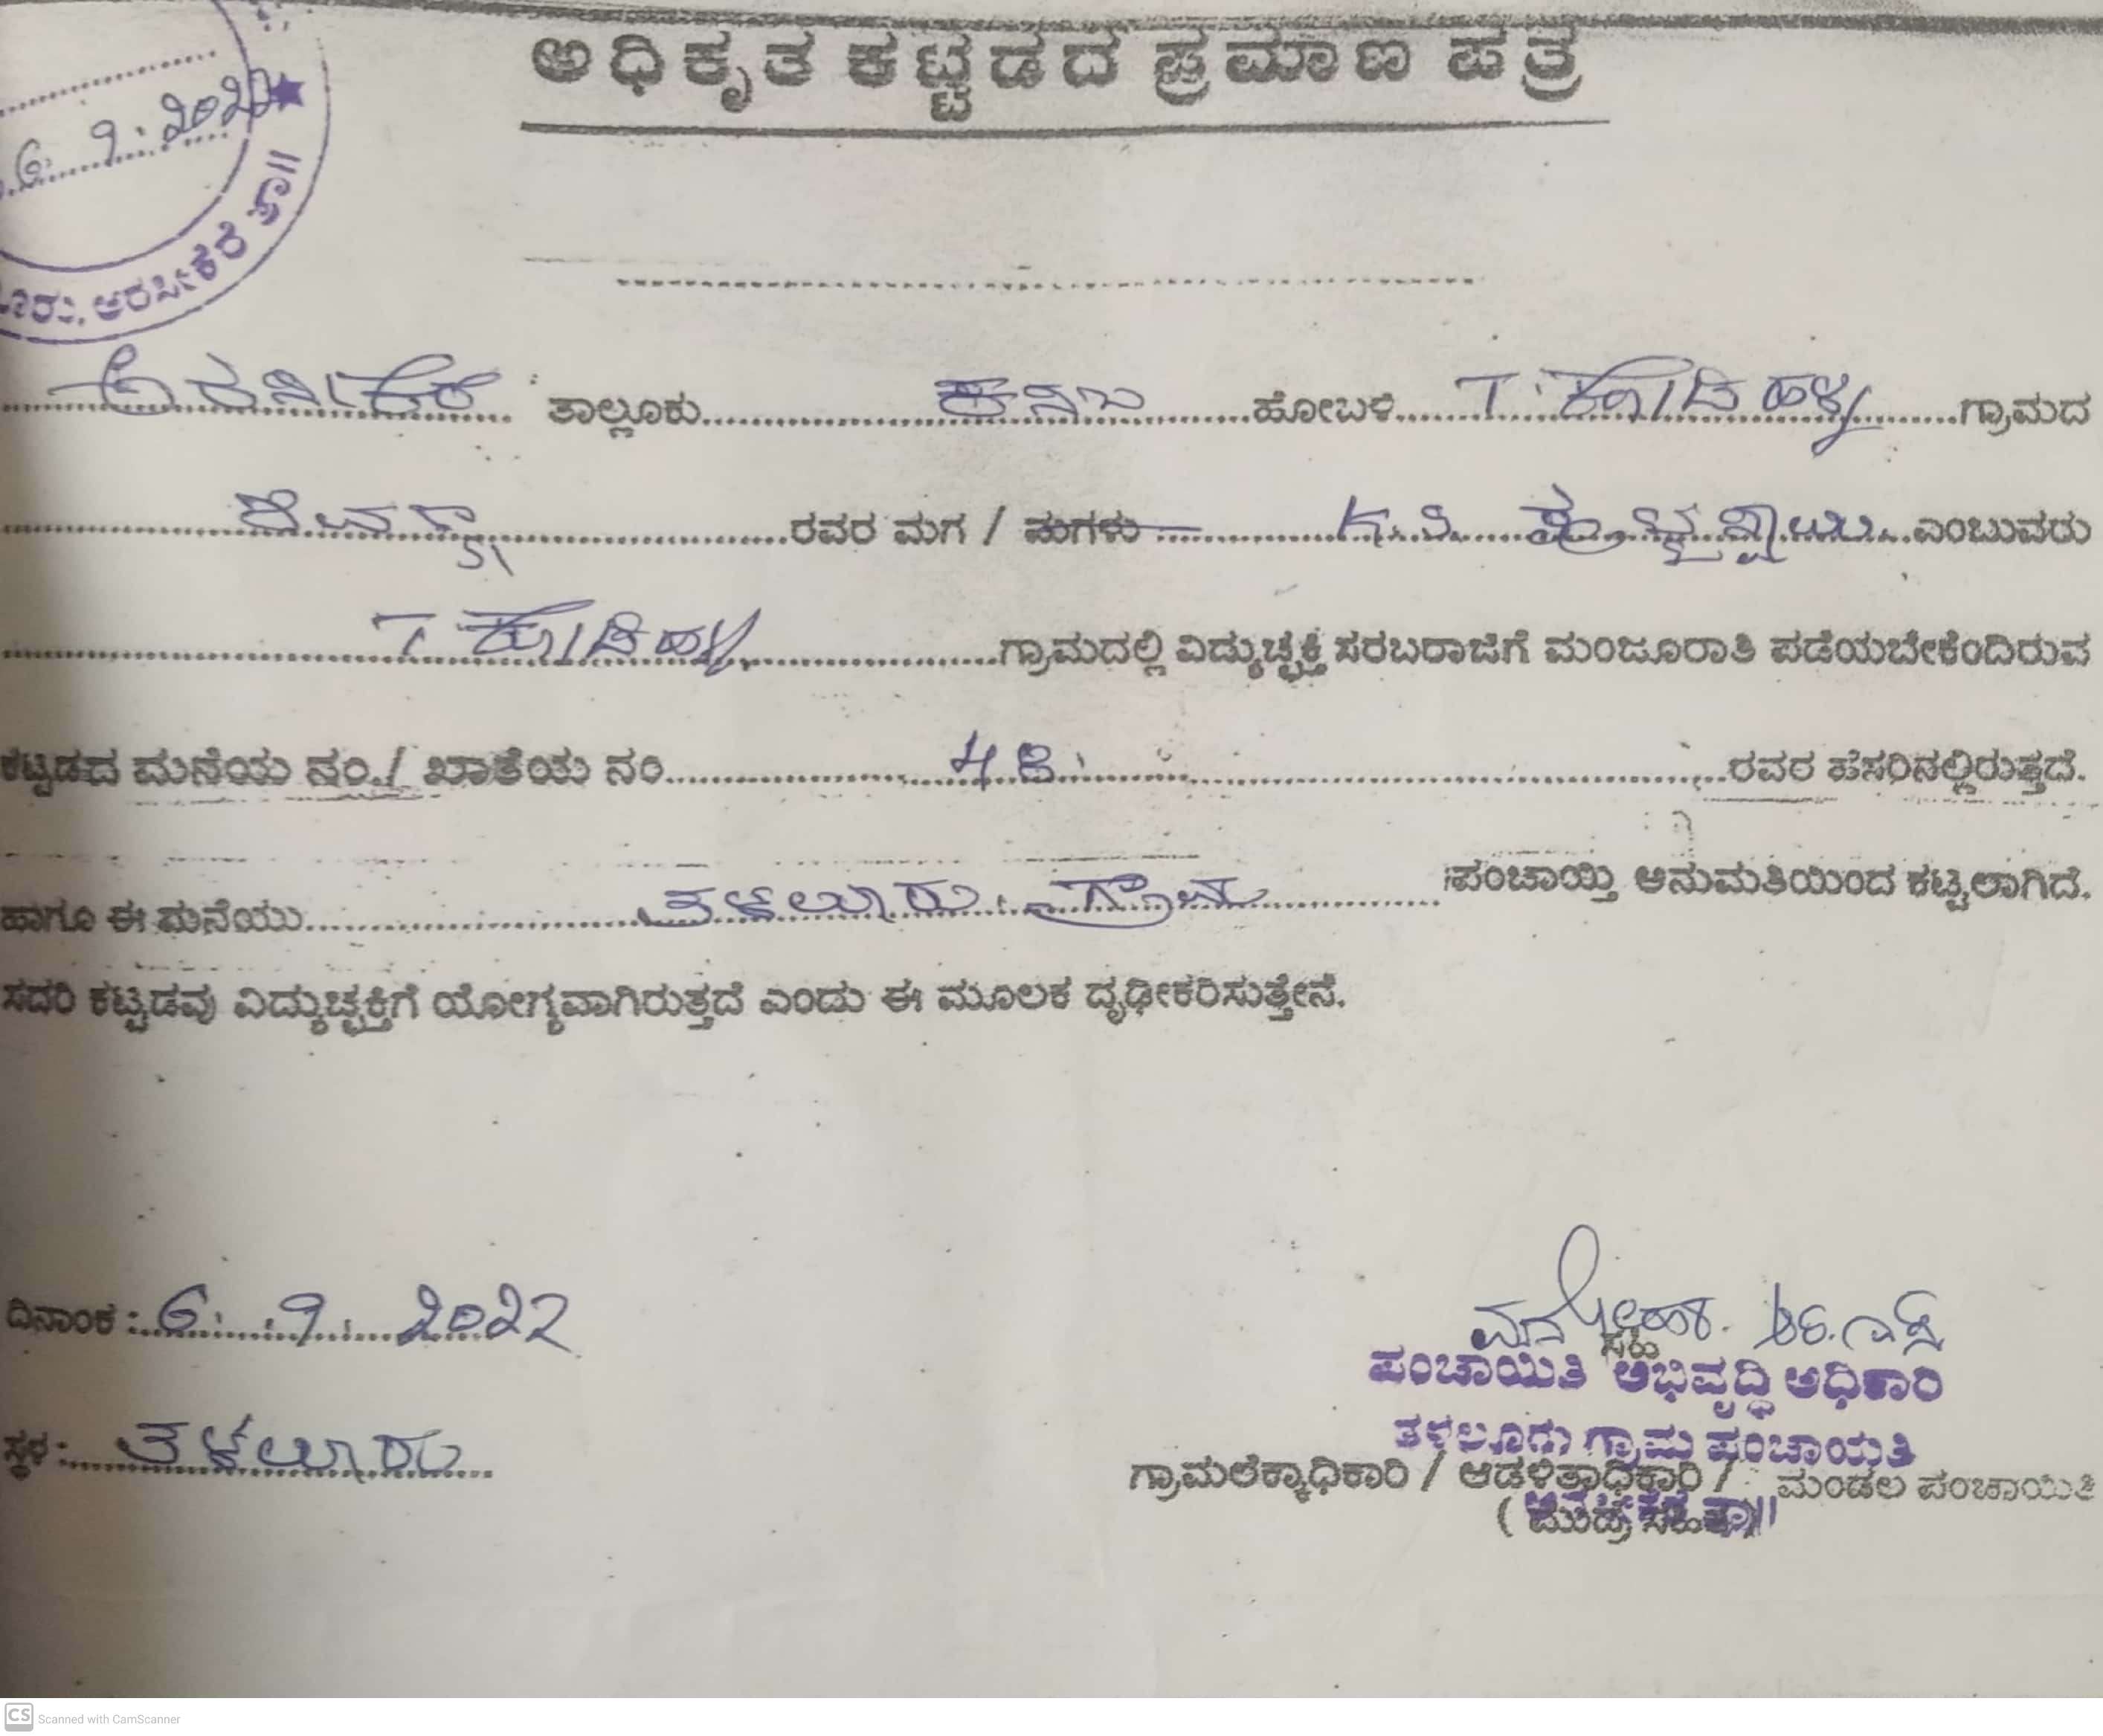 ಅಧಿಕೃತ ಕಟ್ಟಡದ ಪ್ರಮಾಣ ಪತ್ರ
6. 9. 2022
ಅರಸೀಕೆರೆ ತಾ||
ಅರಸೀಕೆರೆ ತಾಲ್ಲೂಕು ಕಸಬಾ ಹೋಬಳಿ T. ಕೋಡಿಹಳ್ಳಿ ಗ್ರಾಮದ
ರವರ ಮಗ / ಮಗಳು K.S. ಎಂಬುವರು
T ಕೋಡಿಹಳ್ಳಿ ಗ್ರಾಮದಲ್ಲಿ ವಿದ್ಯುಚ್ಛಕ್ತಿ ಸರಬರಾಜಿಗೆ ಮಂಜೂರಾತಿ ಪಡೆಯಬೇಕೆಂದಿರುವ
ಕಟ್ಟಡದ ಮನೆಯ ನಂ./ ಖಾತೆಯ ನಂ 48 ರವರ ಹೆಸರಿನಲ್ಲಿರುತ್ತದೆ.
ಹಾಗೂ ಈ ಮನೆಯು ತಳಲೂರು ಗ್ರಾಮ ಪಂಚಾಯ್ತಿ ಅನುಮತಿಯಿಂದ ಕಟ್ಟಲಾಗಿದೆ.
ಸದರಿ ಕಟ್ಟಡವು ವಿದ್ಯುಚ್ಛಕ್ತಿಗೆ ಯೋಗ್ಯವಾಗಿರುತ್ತದೆ ಎಂದು ಈ ಮೂಲಕ ದೃಢೀಕರಿಸುತ್ತೇನೆ.
ದಿನಾಂಕ : 6. 9. 2022
ಸಹಿ
ಪಂಚಾಯಿತಿ ಅಭಿವೃದ್ಧಿ ಅಧಿಕಾರಿ
ತಳಲೂರು ಗ್ರಾಮ ಪಂಚಾಯತಿ
ಸ್ಥಳ : ತಳಲೂರು
ಗ್ರಾಮಲೆಕ್ಕಾಧಿಕಾರಿ / ಆಡಳಿತಾಧಿಕಾರಿ / ಮಂಡಲ ಪಂಚಾಯಿತಿ
( ಮುದ್ರೆ ಸಹಿತ )
CS Scanned with CamScanner